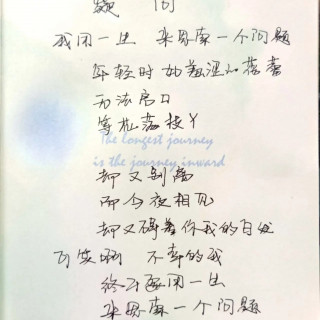 疑 问
我用一生 来思索一个问题
年轻时 如羞涩的蓓蕾
无法启口
等花满枝丫
The longest journey
is the journey inward
却又别离
而今夜相见
却又碍着你我的白发
可笑啊 不幸的我
终于要用一生
来思索一个问题